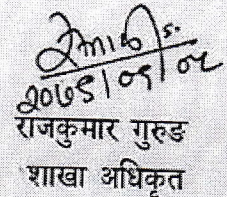 २०७९।०९।०८
राजकुमार गुरुङ
शाखा अधिकृत